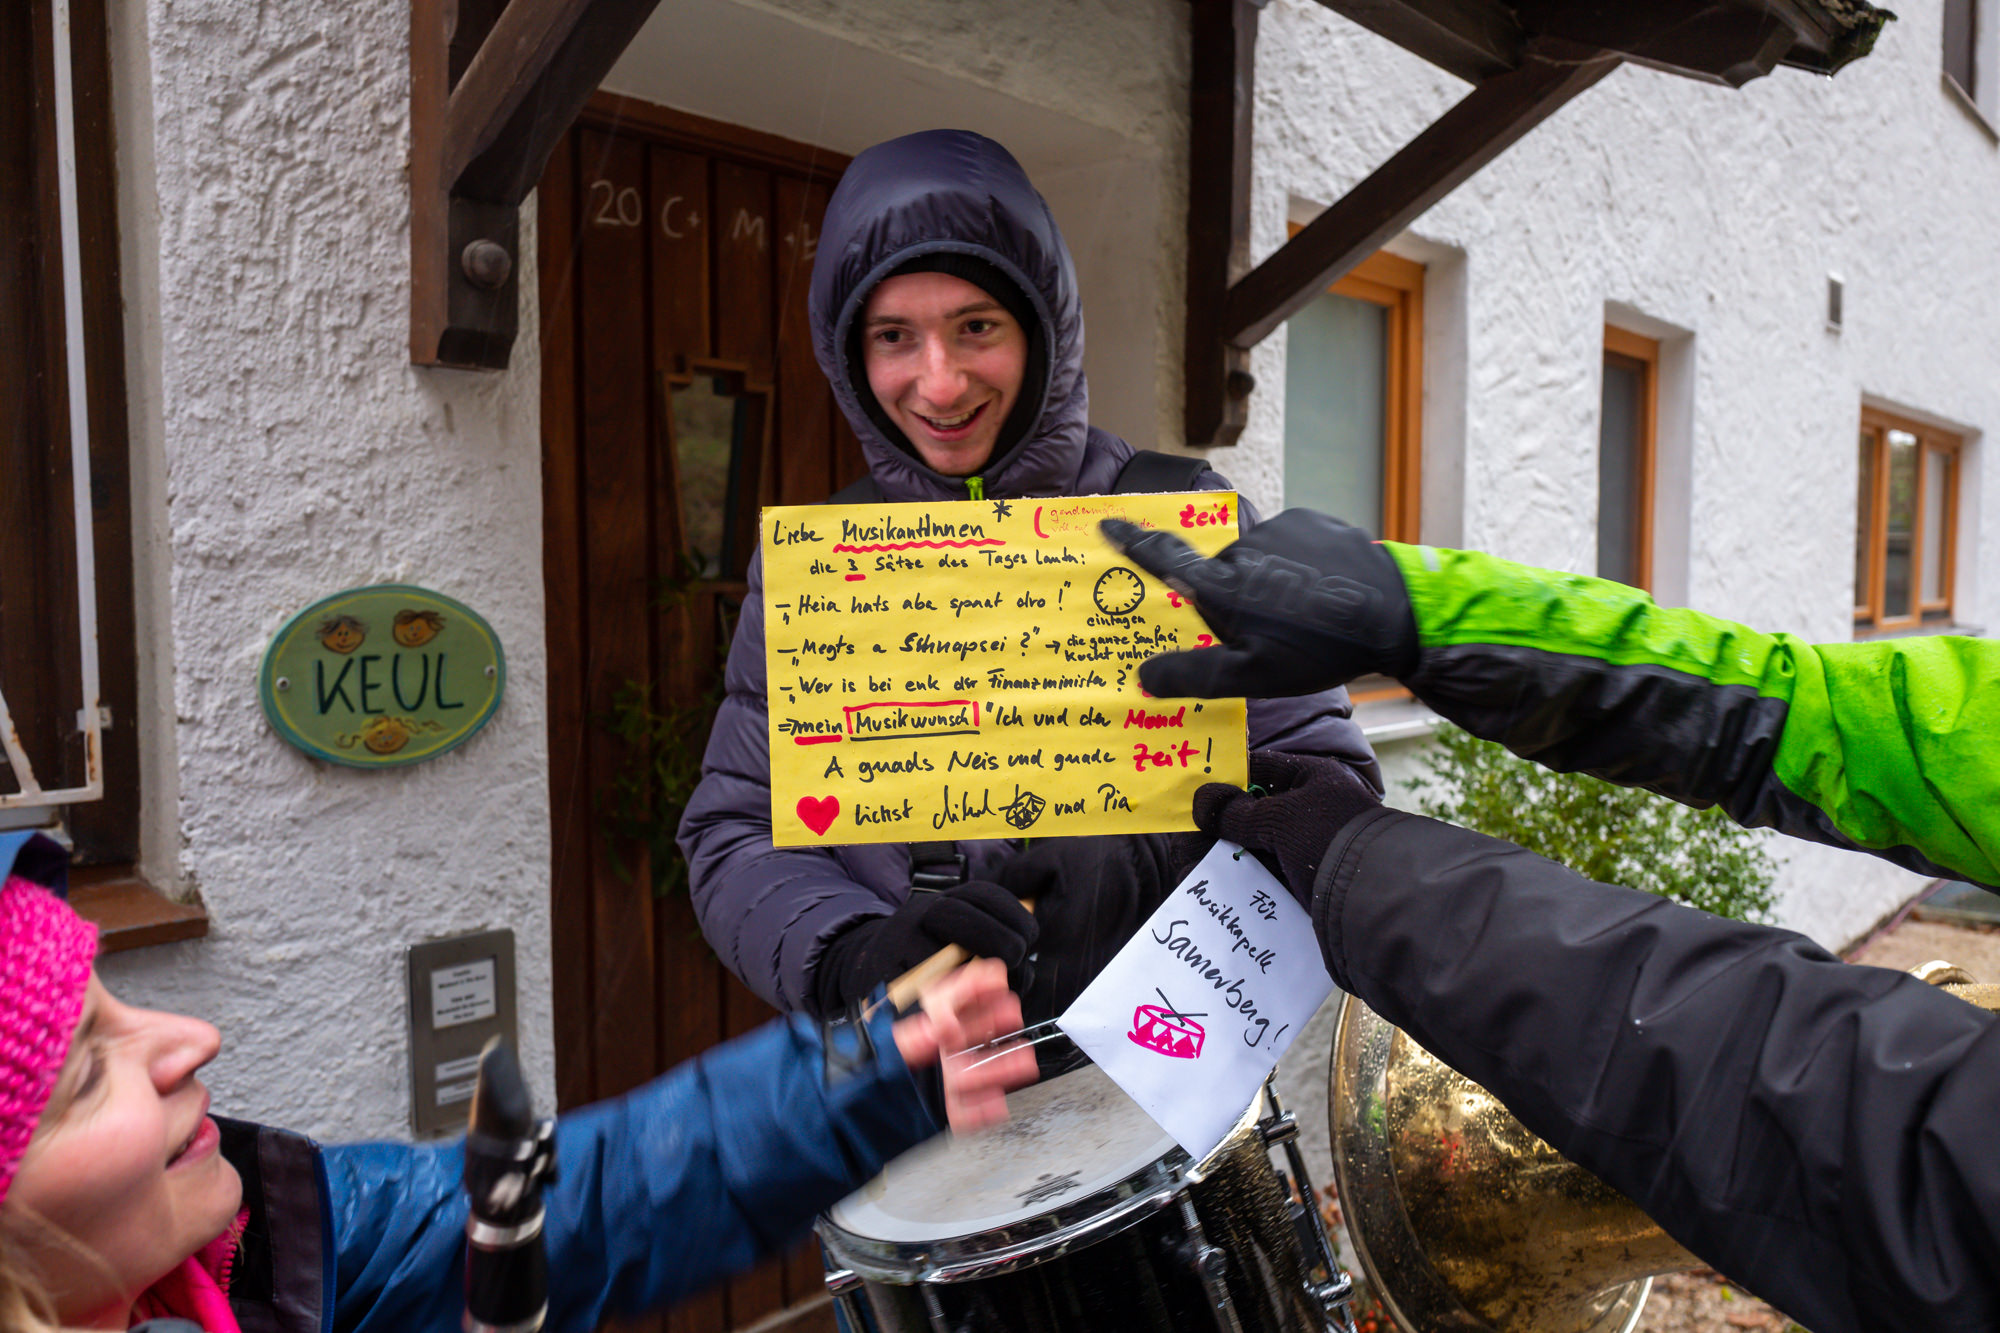 20 C + M + B
KEUL
Liebe MusikantInnen * ( gendermäßig Zeit
voll auf
die 3 Sätze des Tages lautn:
- „Heia hats aba spaat dro!"
eintragen
- „Megts a Schnapsei?" → die ganze
kuckt
- „Wer is bei enk der Finanzminista?"
=> mein Musikwunsch "Ich und der Mond"
A guads Neis und guade Zeit!
lichst und Pia
Für
Musikkapelle
Samerberg!